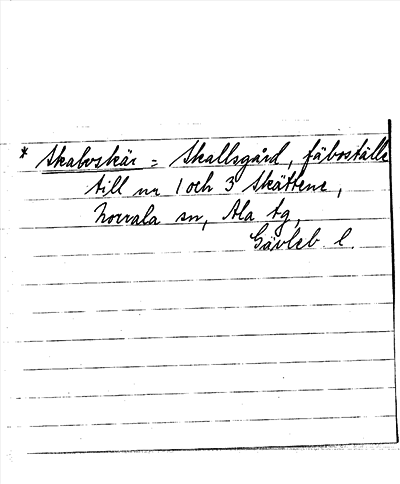 * Skaboskär = Skallsgård, fäboställe
till nr 1 och 3 Skättene,
Norrala sn, Ala tg,
Gävleb. l.